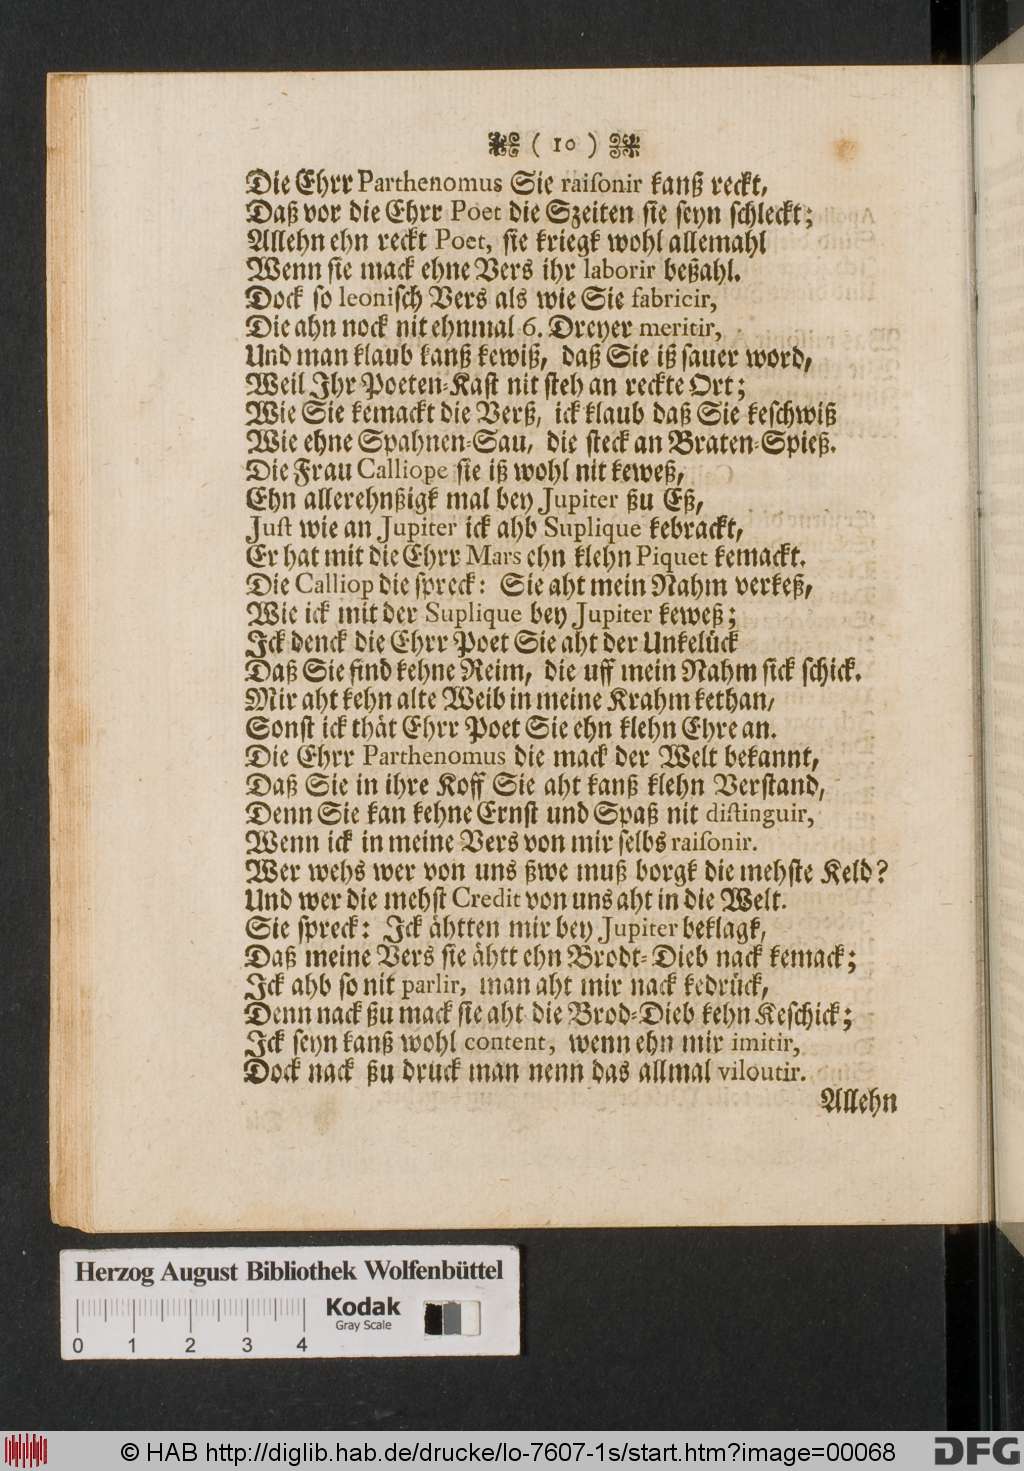 ( 10 )
Die Ehrr Parthenomus Sie raiſonir kanß reckt,
Daß vor die Ehrr Poet die Szeiten ſie ſeyn ſchleckt;
Allehn ehn reckt Poet, ſie kriegk wohl allemahl
Wenn ſie mack ehne Vers ihr laborir beßahl.
Dock ſo leoniſch Vers als wie Sie fabricir,
Die ahn nock nit ehnmal 6. Dreyer meritir,
Und man klaub kanß kewiß, daß Sie iß ſauer word,
Weil Ihr Poeten-Kaſt nit ſteh an reckte Ort;
Wie Sie kemackt die Verß, ick klaub daß Sie keſchwiß
Wie ehne Spahnen-Sau, die ſteck an Braten-Spieß.
Die Frau Calliope ſie iß wohl nit keweß,
Ehn allerehnßigk mal bey Jupiter ßu Eß,
Juſt wie an Jupiter ick ahb Suplique kebrackt,
Er hat mit die Ehrr Mars ehn klehn Piquet kemackt.
Die Calliop die ſpreck: Sie aht mein Nahm verkeß,
Wie ick mit der Suplique bey Jupiter keweß;
Ick denck die Ehrr Poet Sie aht der Unkelück
Daß Sie find kehne Reim, die uff mein Nahm ſick ſchick.
Mir aht kehn alte Weib in meine Krahm kethan,
Sonſt ick thät Ehrr Poet Sie ehn klehn Ehre an.
Die Ehrr Parthenomus die mack der Welt bekannt,
Daß Sie in ihre Koff Sie aht kanß klehn Verſtand,
Denn Sie kan kehne Ernſt und Spaß nit diſtinguir,
Wenn ick in meine Vers von mir ſelbs raiſonir.
Wer wehs wer von uns ßwe muß borgk die mehſte Keld?
Und wer die mehſt Credit von uns aht in die Welt.
Sie ſpreck: Ick ähtten mir bey Jupiter beklagk,
Daß meine Vers ſie ähtt ehn Brodt-Dieb nack kemack;
Ick ahb ſo nit parlir, man aht mir nack kedrück,
Denn nack ßu mack ſie aht die Brod-Dieb kehn Keſchick;
Ick ſeyn kanß wohl content, wenn ehn mir imitir,
Dock nack ßu druck man nenn das allmal viloutir.
Allehn
Herzog August Bibliothek Wolfenbüttel
Kodak
Gray Scale
0 1 2 3 4
© HAB http://diglib.hab.de/drucke/lo-7607-1s/start.htm?image=00068
DFG